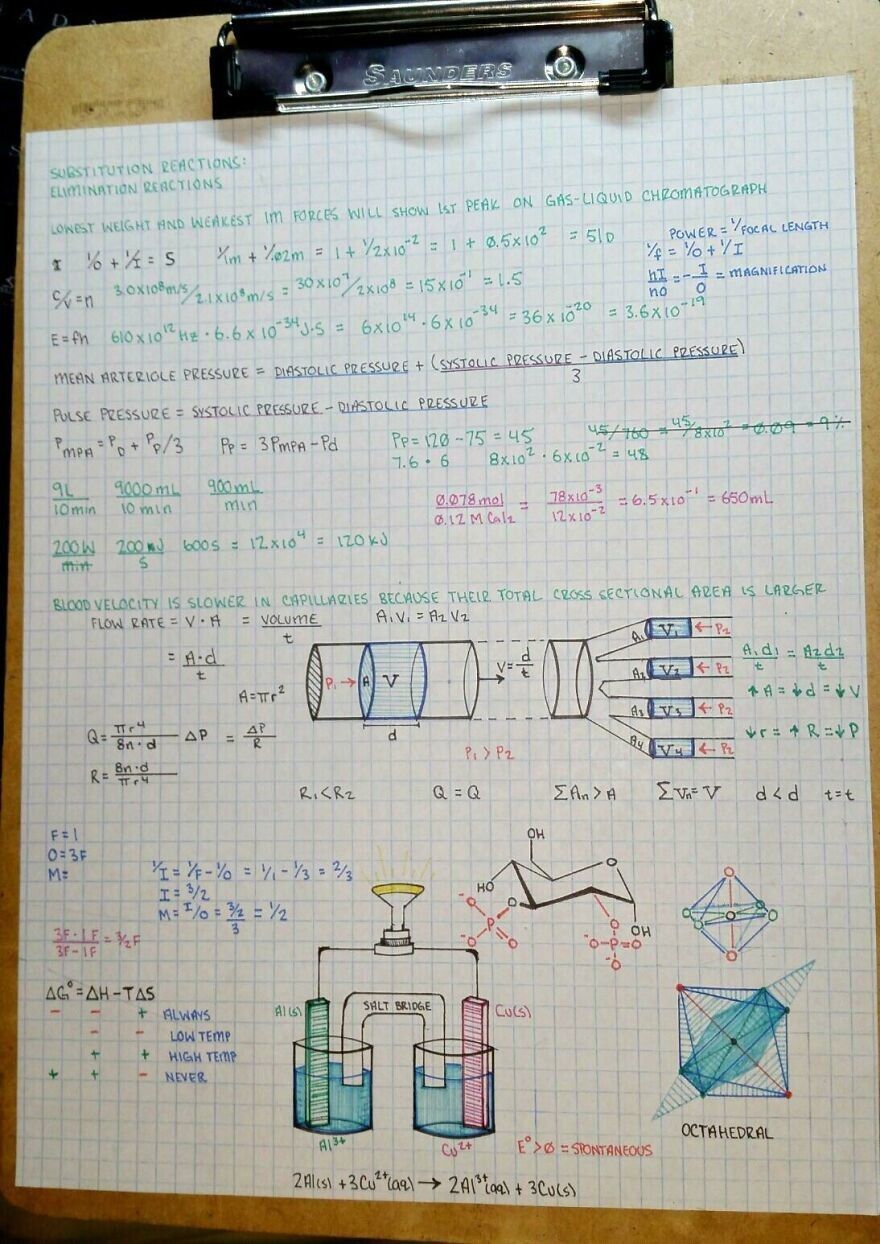 SAUNDERS
SUBSTITUTION REACTIONS:
ELIMINATION REACTIONS
LOWEST WEIGHT AND WEAKEST IM FORCES WILL SHOW 1ST PEAK ON GAS-LIQUID CHROMATOGRAPH
I 1/O + 1/I = S 1/1m + 1/.02m = 1 + 1/2x10⁻² = 1 + 0.5x10² = 51D
POWER = 1/FOCAL LENGTH
1/f = 1/O + 1/I
hI/hO = -I/O = MAGNIFICATION
C/V = n 3.0x10⁸m/s/2.1x10⁸m/s = 30x10⁷/2x10⁸ = 15x10⁻¹ = 1.5
E = fh 610x10¹²Hz · 6.6x10⁻³⁴J·S = 6x10¹⁴ · 6x10⁻³⁴ = 36x10⁻²⁰ = 3.6x10⁻¹⁹
MEAN ARTERIOLE PRESSURE = DIASTOLIC PRESSURE + (SYSTOLIC PRESSURE - DIASTOLIC PRESSURE)/3
PULSE PRESSURE = SYSTOLIC PRESSURE - DIASTOLIC PRESSURE
PMPA = PD + PP/3 PP = 3PMPA - Pd PP = 120 - 75 = 45 45/760 = 45/8x10² = 0.09 = 9%
7.6 · 6 8x10² · 6x10⁻² = 48
9L/10min 9000mL/10min 900mL/min
0.078mol/0.12 M CaI2 = 78x10⁻³/12x10⁻² = 6.5x10⁻¹ = 650mL
200W/min 200J/S 600s = 12x10⁴ = 120KJ
BLOOD VELOCITY IS SLOWER IN CAPILLARIES BECAUSE THEIR TOTAL CROSS SECTIONAL AREA IS LARGER
FLOW RATE = V · A = VOLUME/t A₁V₁ = A₂V₂
= A·d/t
A = πr²
P₁ → A V d
V = d/t
A₁ V₁ ← P₂
A₂ V₂ ← P₂
A₃ V₃ ← P₂
A₄ V₄ ← P₂
A₁d₁/t = A₂d₂/t
↑A = ↓d = ↓V
↓r = ↑R = ↓P
Q = πr⁴/8n·d ΔP = ΔP/R
P₁ > P₂
R = 8n·d/πr⁴
R₁<R₂ Q = Q ΣAn > A ΣVn = V d < d t = t
F = 1
O = 3F
M =
1/I = 1/F - 1/O = 1/1 - 1/3 = 2/3
I = 3/2
M = I/O = 3/2/3 = 1/2
3F · 1F/3F - 1F = 3/2F
OH
O
HO
O
-O
P
-O
O
OH
O
-O-P=O
O-
O
O O
O O O
O
ΔG° = ΔH - TΔS
- - + ALWAYS
- - LOW TEMP
+ + HIGH TEMP
+ + - NEVER
Al(s)
SALT BRIDGE
Cu(s)
Al³⁺
Cu²⁺
E° > 0 = SPONTANEOUS
OCTAHEDRAL
2Al(s) + 3Cu²⁺(aq) → 2Al³⁺(aq) + 3Cu(s)